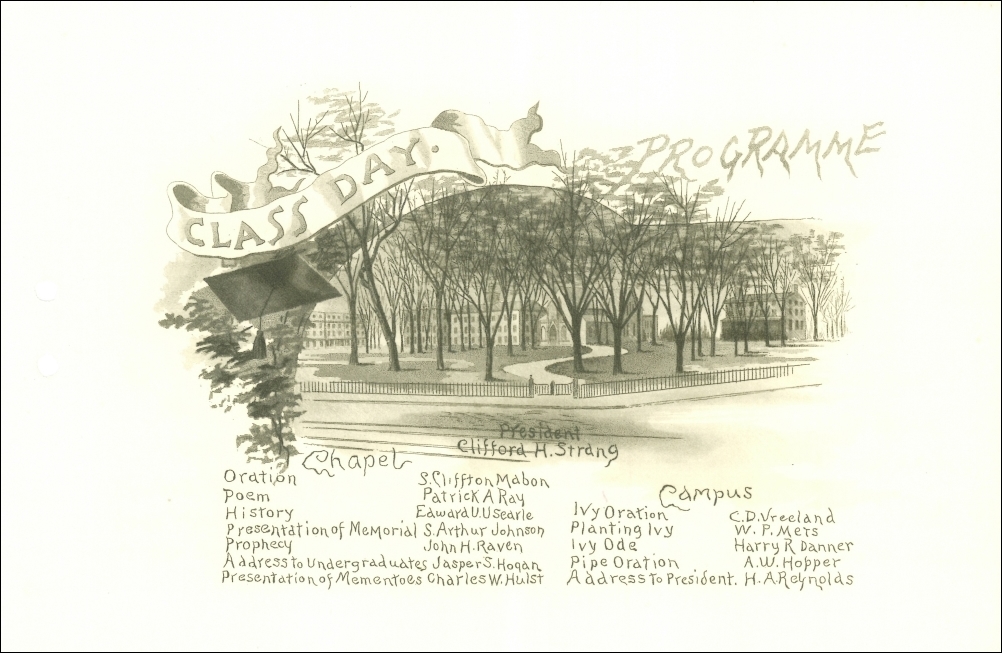 CLASS DAY.
PROGRAMME
President
Clifford H. Strang
Chapel
Oration S. Cliffton Mabon
Poem Patrick A Ray
History Edward U. Usearle
Presentation of Memorial S. Arthur Johnson
Prophecy John H. Raven
Address to Undergraduates Jasper S. Hogan
Presentation of Mementoes Charles W. Hulst
Campus
Ivy Oration C. D. Vreeland
Planting Ivy W. P. Mets
Ivy Ode Harry R Danner
Pipe Oration A. W. Hopper
Address to President. H. A. Reynolds